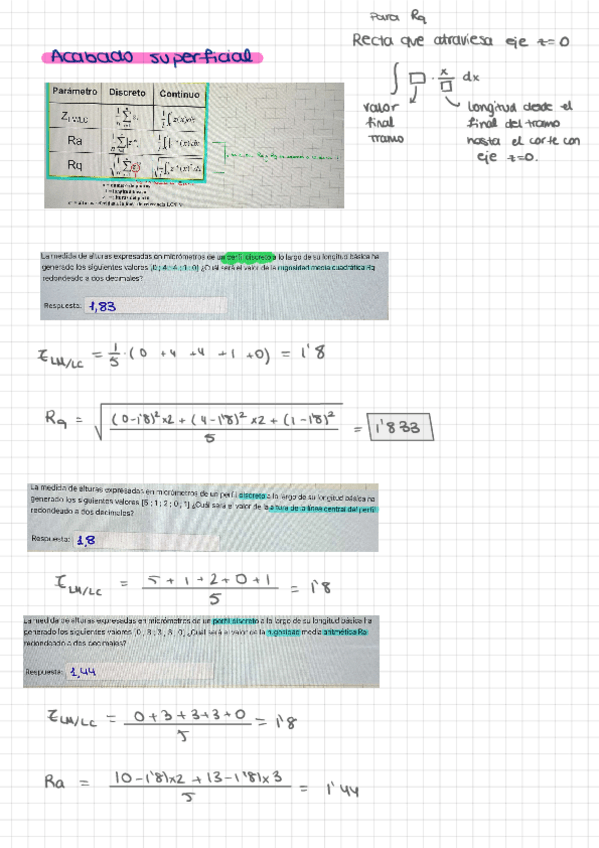 Para Rq
Recta que atraviesa eje z=0
∫ □ · x/□ dx
valor final tramo
longitud desde el final del tramo hasta el corte con eje z=0.
Acabado superficial
Parámetro Discreto Continuo
Z LM/LC
Ra
Rq
La medida de alturas expresadas en micrómetros de un perfil discreto a lo largo de su longitud básica ha
generado los siguientes valores [0 ; 4 ; 4 ; 1 ; 0] ¿Cuál será el valor de la rugosidad media cuadrática Rq
redondeado a dos decimales?
Respuesta: 1,83
Z LM/LC = 1/5 · (0 + 4 + 4 + 1 + 0) = 1'8
Rq = √((0-1'8)² x2 + (4-1'8)² x2 + (1-1'8)² / 5) = 1'833
La medida de alturas expresadas en micrómetros de un perfil discreto a lo largo de su longitud básica ha
generado los siguientes valores [5 ; 1 ; 2 ; 0 ; 1] ¿Cuál será el valor de la altura de la línea central del perfil
redondeado a dos decimales?
Respuesta: 1,8
Z LM/LC = 5+1+2+0+1 / 5 = 1'8
La medida de alturas expresadas en micrómetros de un perfil discreto a lo largo de su longitud básica ha
generado los siguientes valores [0 ; 3 ; 3 ; 3 ; 0] ¿Cuál será el valor de la rugosidad media aritmética Ra
redondeado a dos decimales?
Respuesta: 1,44
Z LM/LC = 0+3+3+3+0 / 5 = 1'8
Ra = |0-1'8|x2 + |3-1'8|x3 / 5 = 1'44